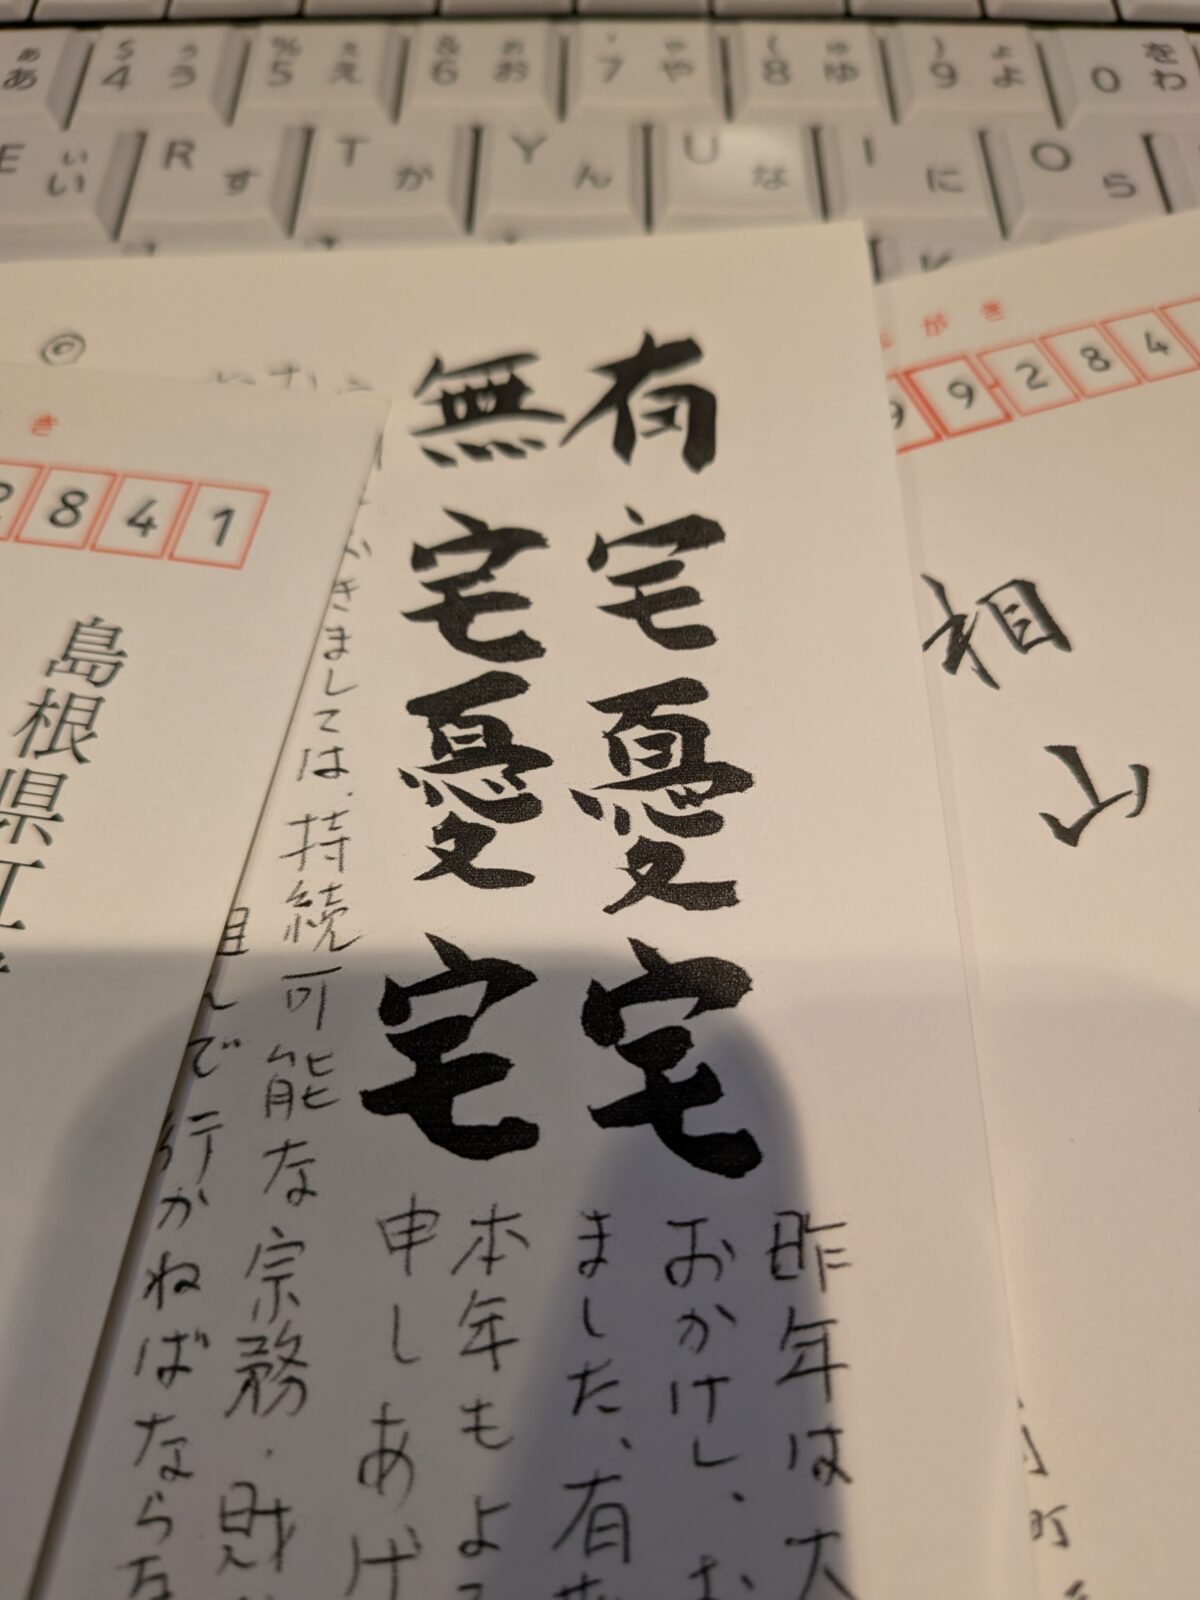 ぁ
あ
$
4
ぅ
う
%
5
ぇ
え
&
6
ぉ
お
'
7
ゃ
や
(
8
ゅ
ゆ
)
9
ょ
よ
0
を
わ
E
ぃ
い
R
す
T
か
Y
ん
U
な
I
に
O
ら
がき
9284
相山
有宅憂宅
無宅憂宅
昨年は大
おかけし、お
ました、有
本年もよ
申しあげ
きましては、持続可能な宗務・財
んで行かねばならな
©
き
841
島根県江
町